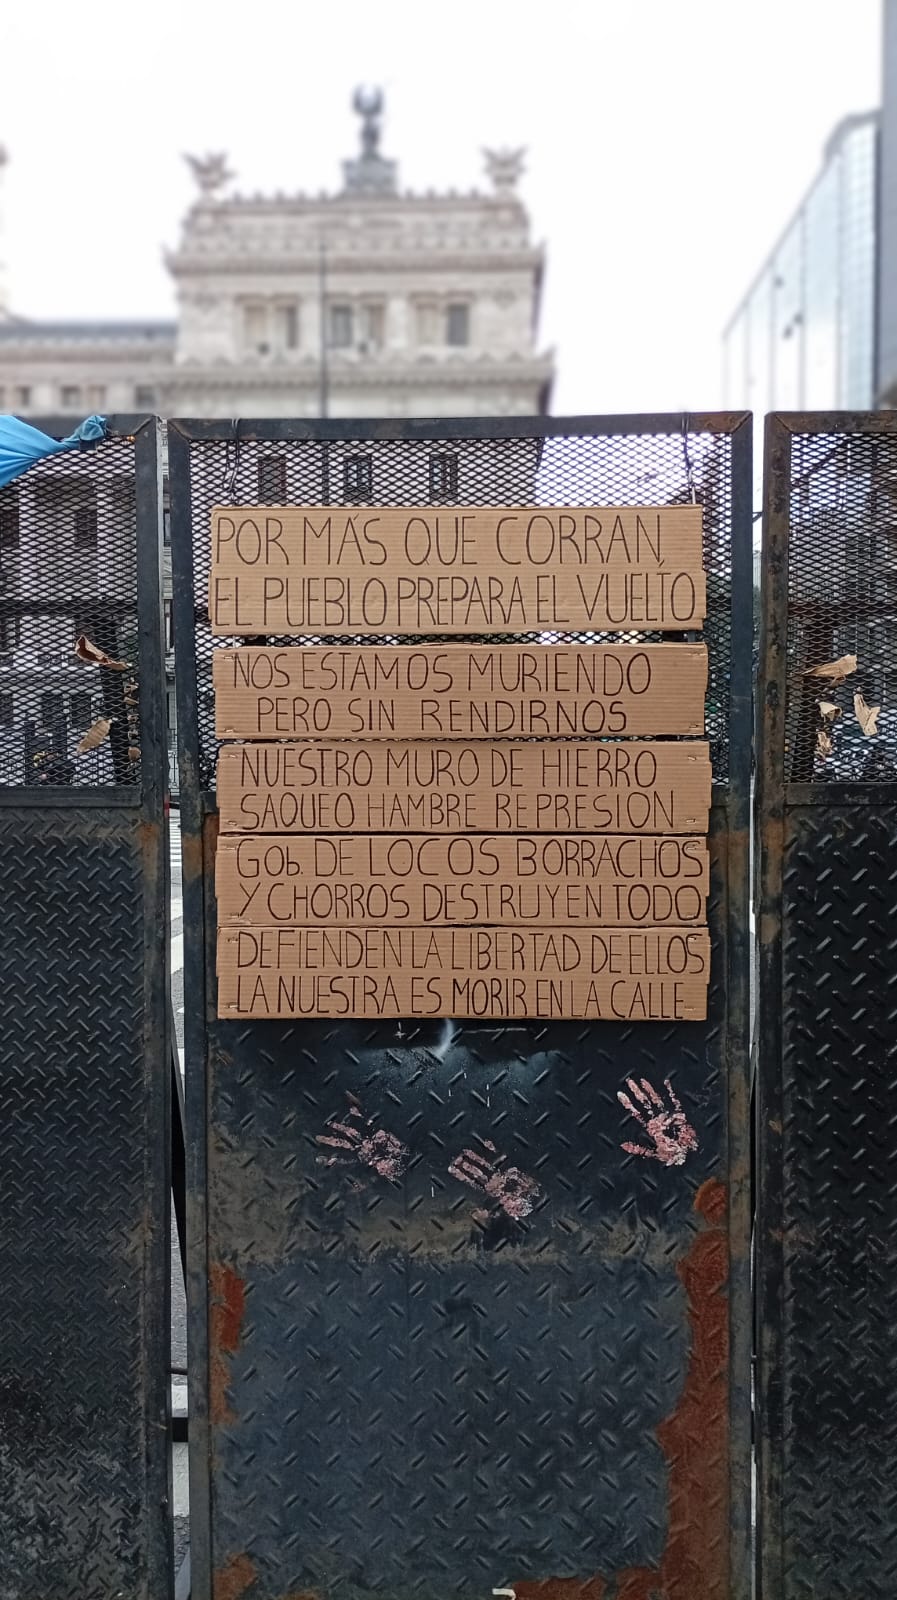 POR MÁS QUE CORRAN,
EL PUEBLO PREPARA EL VUELTO
NOS ESTAMOS MURIENDO
PERO SIN RENDIRNOS
NUESTRO MURO DE HIERRO
SAQUEO HAMBRE REPRESION
GOb. DE LOCOS BORRACHOS
Y CHORROS DESTRUYEN TODO
DEFIENDEN LA LIBERTAD DE ELLOS
LA NUESTRA ES MORIR EN LA CALLE